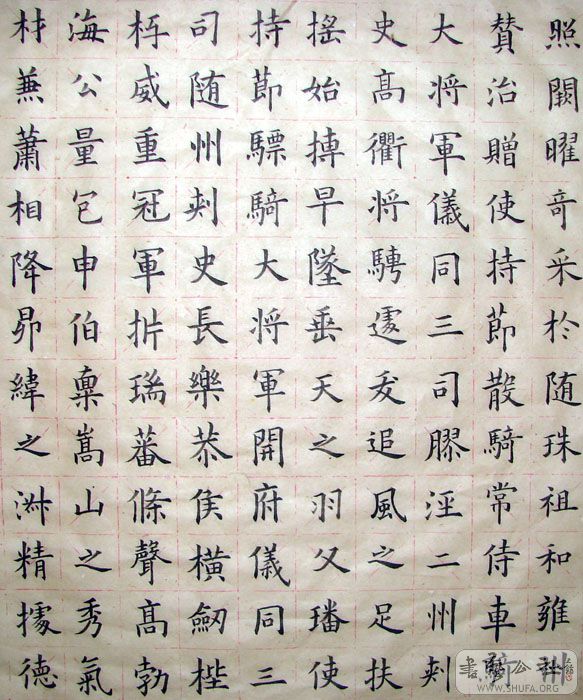 照闕曜奇采於随珠祖和雍州
賛治贈使持節散騎常侍車騎
大将軍儀同三司膠涇二州刾
史髙衢将騁遽夭追風之足扶
摇始摶早墜垂天之羽父璠使
持節驃騎大将軍開府儀同三
司随州刾史長樂恭侯橫劒梐
枑威重冠軍析瑞蕃條聲髙勃
海公量包申伯稟嵩山之秀氣
材兼蕭相降昴緯之淑精據德
WWW.SHUFA.ORG